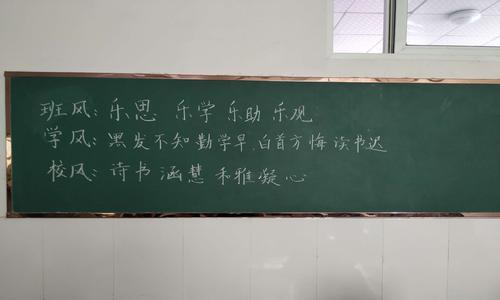 班风：乐思 乐学 乐助 乐观
学风：黑发不知勤学早，白首方悔读书迟
校风：诗书涵慧 和雅凝心